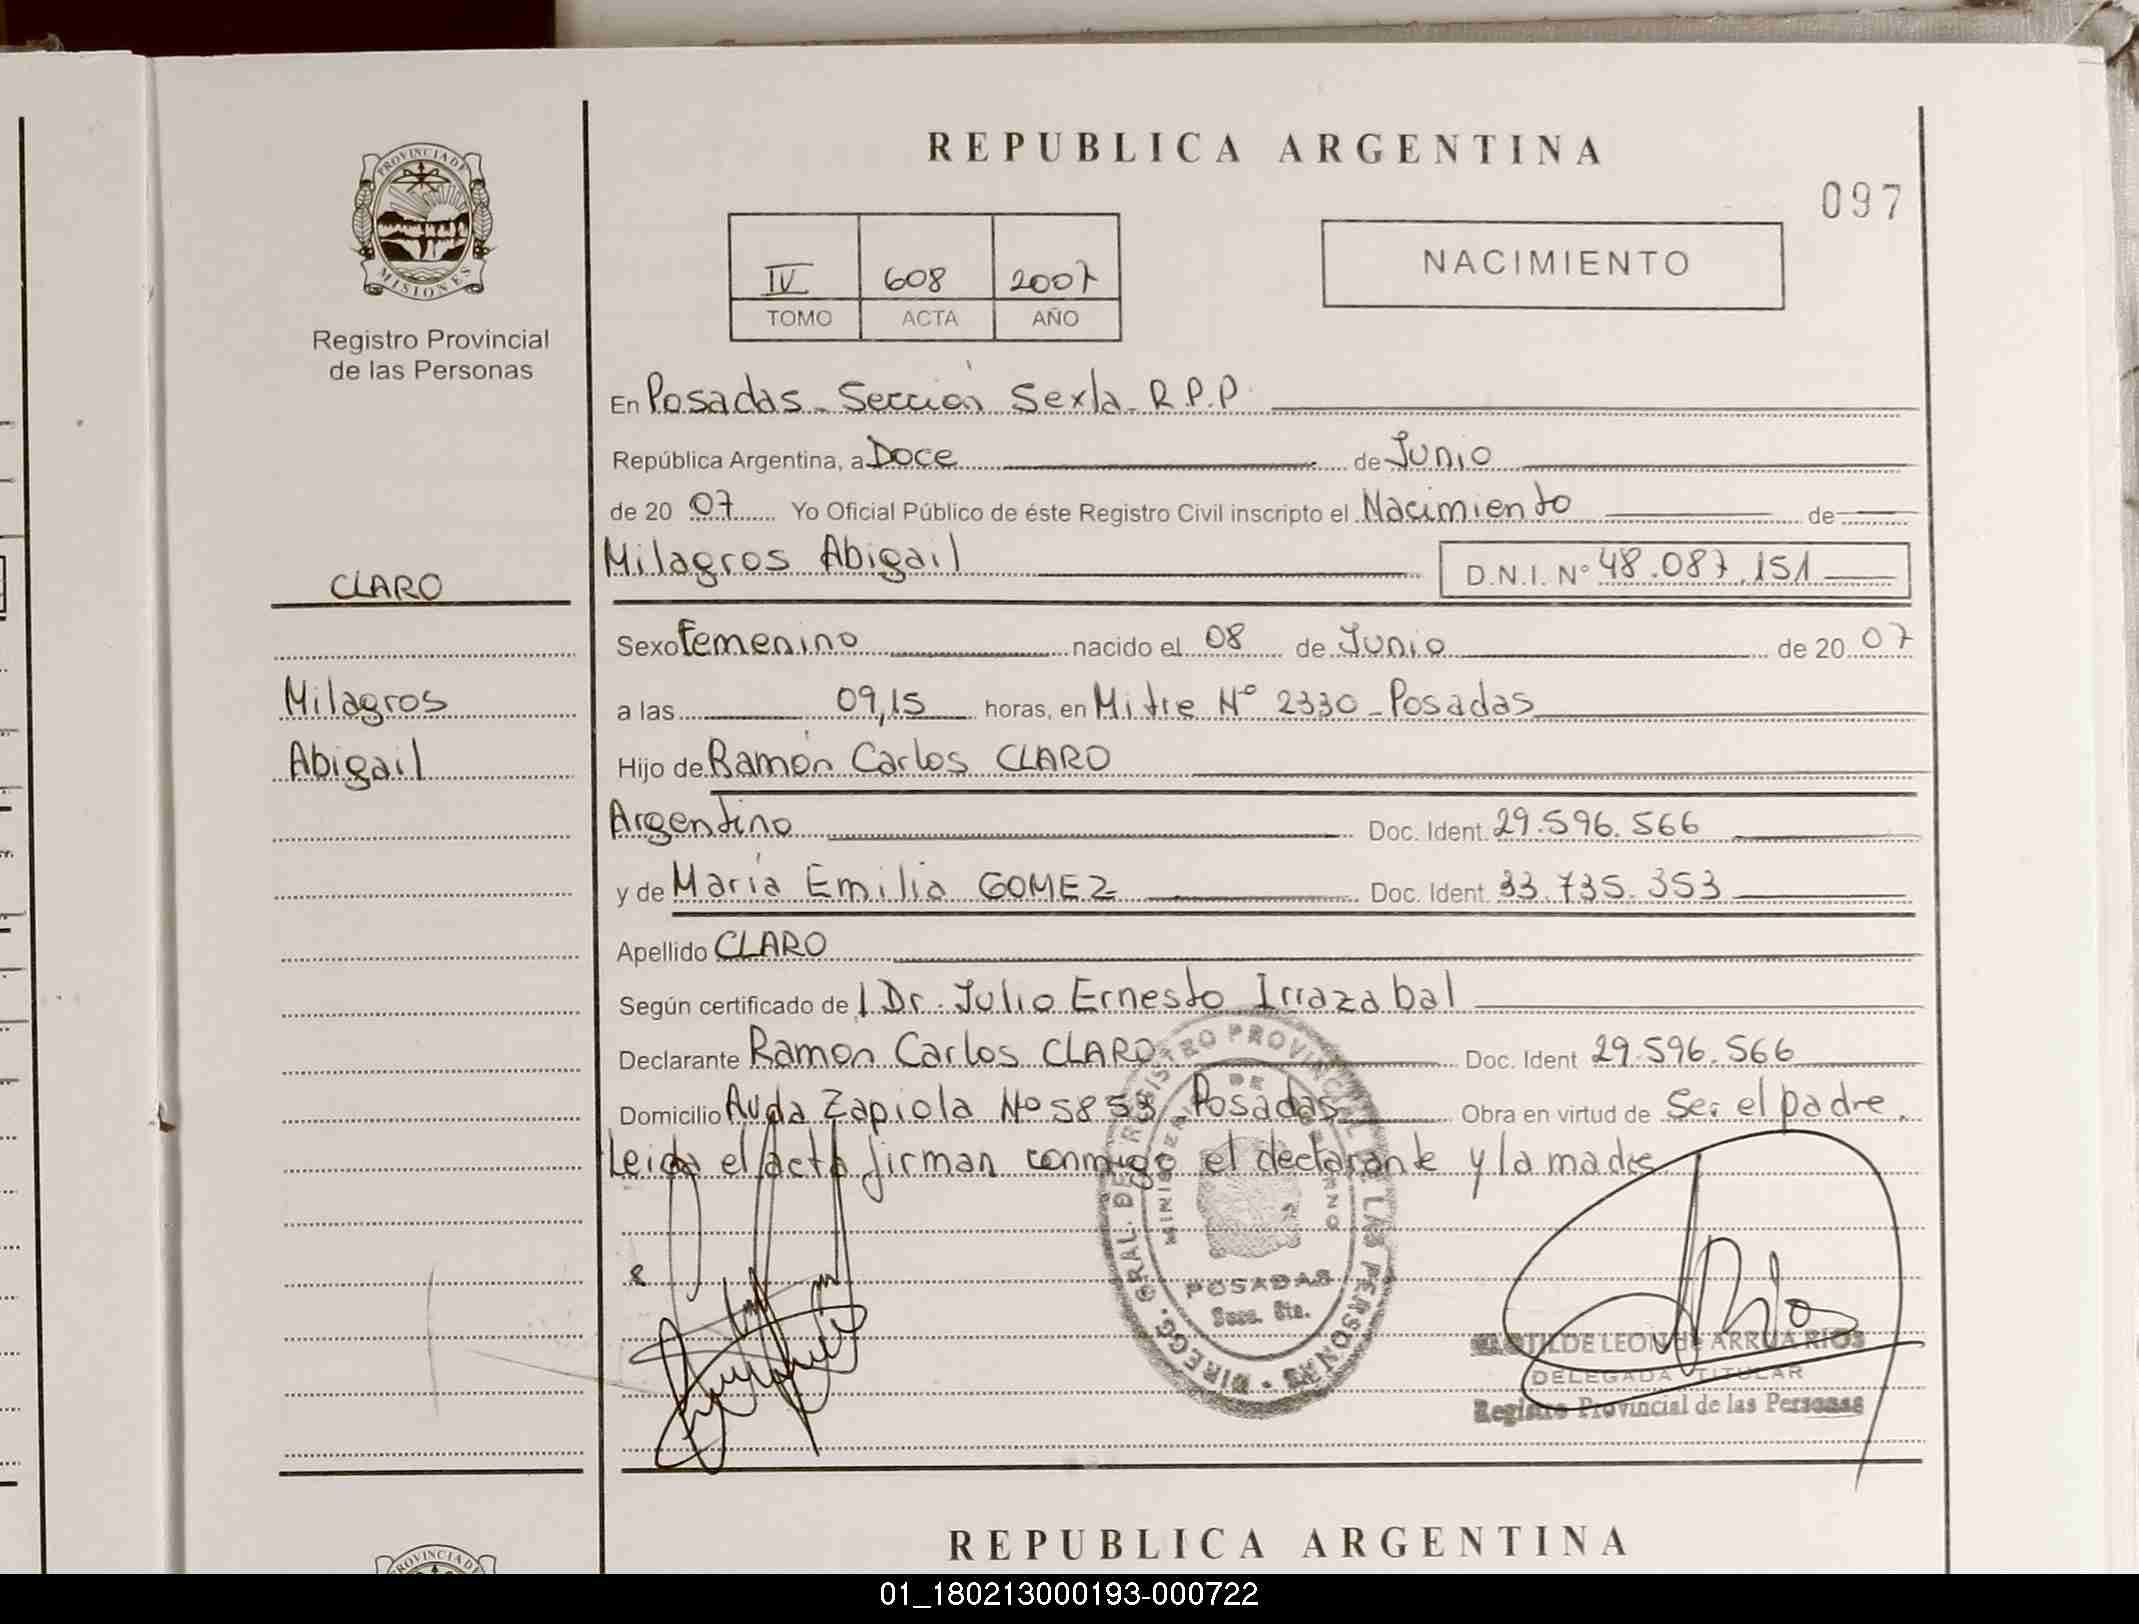 REPUBLICA ARGENTINA
097
PROVINCIA DE
MISIONES
Registro Provincial
de las Personas
IV 608 2007
TOMO ACTA AÑO
NACIMIENTO
En Posadas - Sección Sexta - R.P.P.
República Argentina, a Doce de Junio
de 20 07 Yo Oficial Público de éste Registro Civil inscripto el Nacimiento de
CLARO
Milagros Abigail D.N.I. N° 48.087.151
Sexo Femenino nacido el 08 de Junio de 20 07
Milagros
a las 09,15 horas, en Mitre N° 2330 - Posadas
Abigail
Hijo de Ramón Carlos CLARO
Argentino Doc. Ident. 29.596.566
y de María Emilia GOMEZ Doc. Ident. 33.735.353
Apellido CLARO
Según certificado de Dr. Julio Ernesto Irrazabal
Declarante Ramon Carlos CLARO Doc. Ident 29.596.566
Domicilio Avda Zapiola N° 5853 - Posadas Obra en virtud de Ser el padre.
Leida el acta firman conmigo el declarante y la madre
DIREGG. GRAL. DE REGISTRO PROVINCIAL DE LAS PERSONAS
MINISTERIO DE GOBIERNO
POSADAS
Secc. 6ta.
MATILDE LEON de ARRUA RÍOS
DELEGADA TITULAR
Registro Provincial de las Personas
REPUBLICA ARGENTINA
PROVINCIA DE
01_180213000193-000722